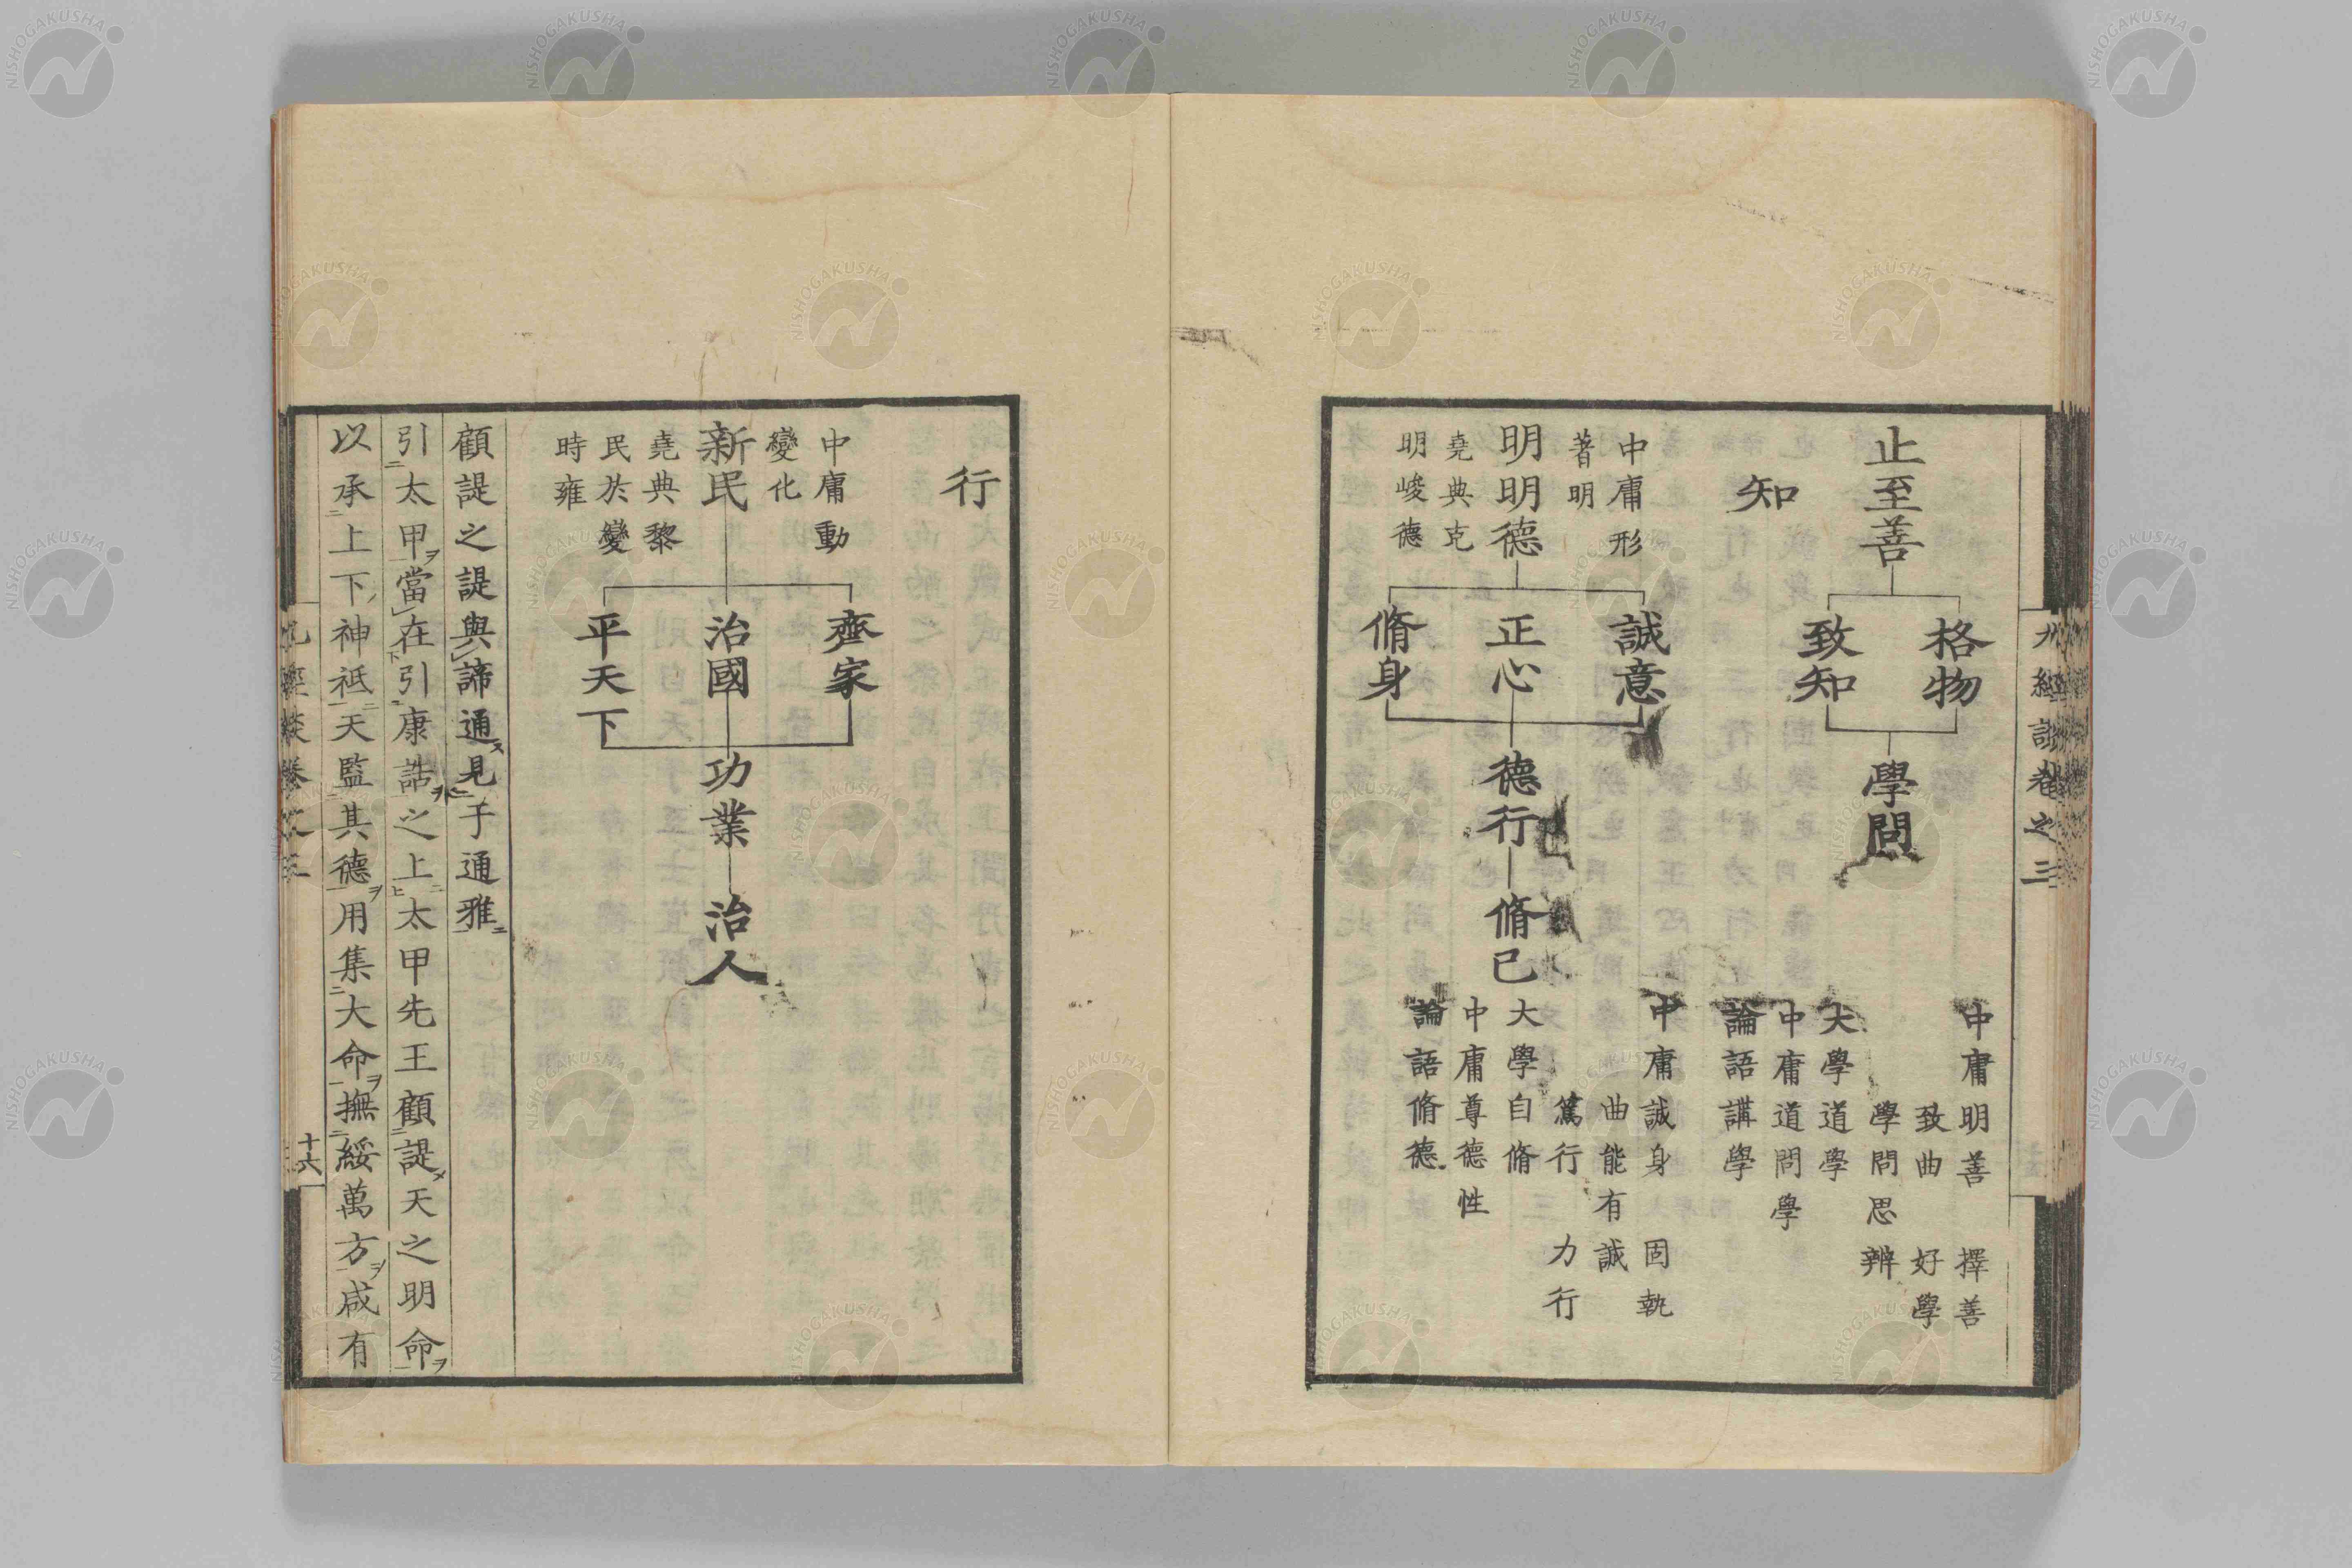 九經談卷之三
止至善
格物
致知
學問
中庸明善 擇善
致曲 好學
學問思辨
大學道學
中庸道問學
論語講學
知
中庸形
著明
明明德
堯典克
明峻德
誠意
正心
脩身
德行
脩己
中庸誠身 固執
曲能有誠
篤行 力行
大學自脩
中庸尊德性
論語脩德
行
中庸動
變化
新民
堯典黎
民於變
時雍
齊家
治國
平天下
功業
治人
顧諟之諟與諦通見于通雅
引太甲ヲ當在引康誥ヲ之上太甲先王顧諟天之明命ヲ
以承上下ノ神祇天監其德ヲ用集大命ヲ撫綏萬方ヲ咸有
九經談卷之三
十六
NISHOGAKUSHA